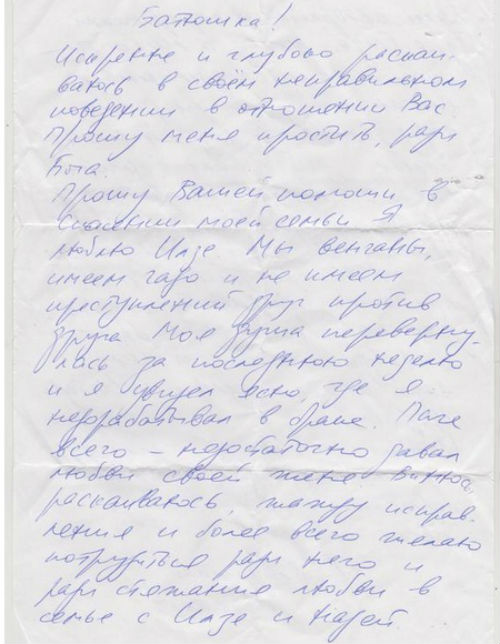 Батюшка!
Искренне и глубоко раскаи-
ваюсь в своём неправильном
поведении в отношении Вас
Прошу меня простить, ради
Бога.
Прошу Вашей помощи в
спасении моей семьи Я
люблю Илзе. Мы венчаны,
имеем чадо и не имеем
преступлений друг против
друга Моя душа переверну-
лась за последнюю неделю
и я увидел ясно, где я
недорабатывал в браке.
всего – недостаточно давал
любви своей жене
раскаиваюсь, жажду исправ-
ления и более всего желаю
потрудиться ради него и
ради стяжания любви в
семье с Илзе и